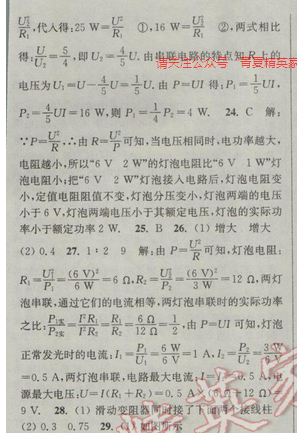 U₂²/R₁,代入得:25 W=U²/R₁ ①,16 W=U₂²/R₁ ②,两式相比
得:U/U₂=5/4,即U₂=4/5 U.由串联电路的特点知R上的
请关注公众号
电压为U₁=U-4/5 U=1/5 U.由P=UI得:P₁=1/5 UI,
P₂=4/5 UI=16 W,则P₁=1/4 P₂=4 W. 24. C 解:
∵P=U²/R,∴由R=U²/P可知,当电压相同时,电功率越大,
电阻越小,所以“6 V 2 W”的灯泡电阻比“6 V 1 W”灯
泡电阻小;把“6 V 2 W”灯泡接入电路后,灯泡电阻变
小,定值电阻阻值不变,灯泡分压变小,灯泡两端的电压
小于6 V,灯泡两端电压小于其额定电压,灯泡的实际功
率小于额定功率2 W. 25. B 26. (1)增大 增大
(2)0.4 27. 1∶2 9 解:由P=U²/R可知,灯泡电阻:
R₁=U₁²/P₁=(6 V)²/6 W=6 Ω,R₂=U₂²/P₂=(6 V)²/3 W=12 Ω,两灯
泡串联,通过它们的电流相等,两灯泡串联时的实际功率
之比:P₁实/P₂实=I²R₁/I²R₂=R₁/R₂=6 Ω/12 Ω=1/2,由P=UI可知,灯泡
正常发光时的电流:I₁=P₁/U₁=6 W/6 V=1 A,I₂=P₂/U₂=3 W/6 V
=0.5 A,两灯泡串联,电路最大电流:I=I₂=0.5 A,电
源最大电压:U=I(R₁+R₂)=0.5 A×(6 Ω+12 Ω)=
9 V. 28. (1)滑动变阻器同时接了下面两个接线柱
(2)0.3 0.75 29. (1)如图所示